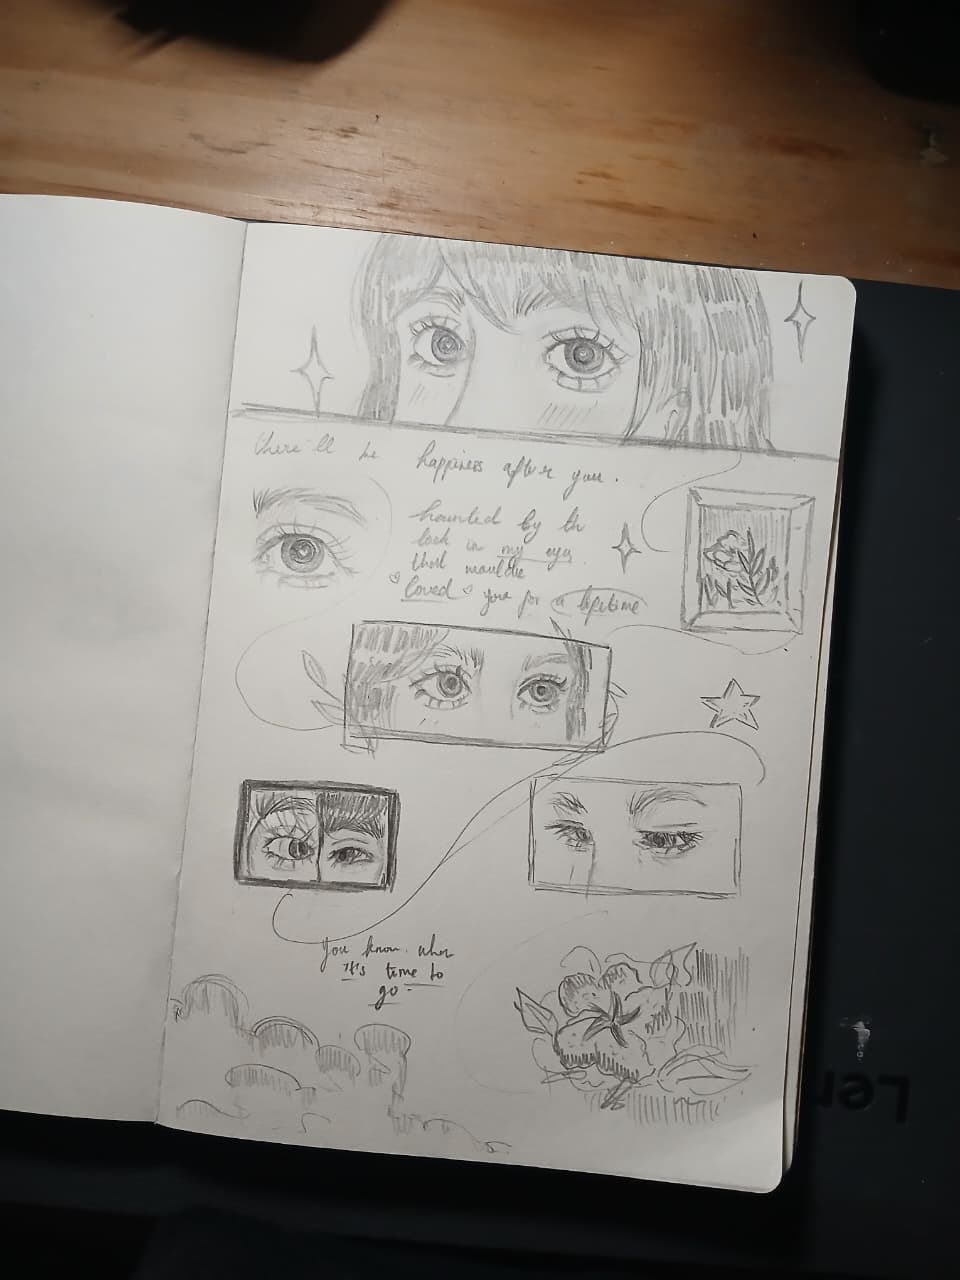 there'll be happiness after you.
haunted by the
look in my eyes
that would've
loved you for a lifetime
You know when
it's time to
go.
Len